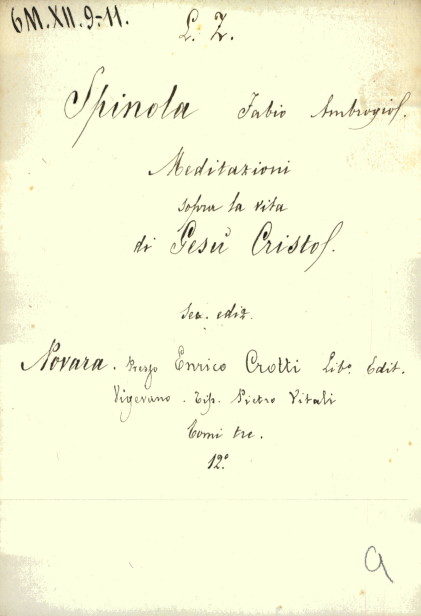 6M.XII.9-11.
L. Z.
Spinola Fabio Ambrogio S.
Meditazioni
sopra la vita
di Gesù Cristo S.
Sec. ediz.
Novara. Presso Enrico Crotti Libº Edit.
Vigevano. Tip. Pietro Vitali
Tomi tre.
12º
a